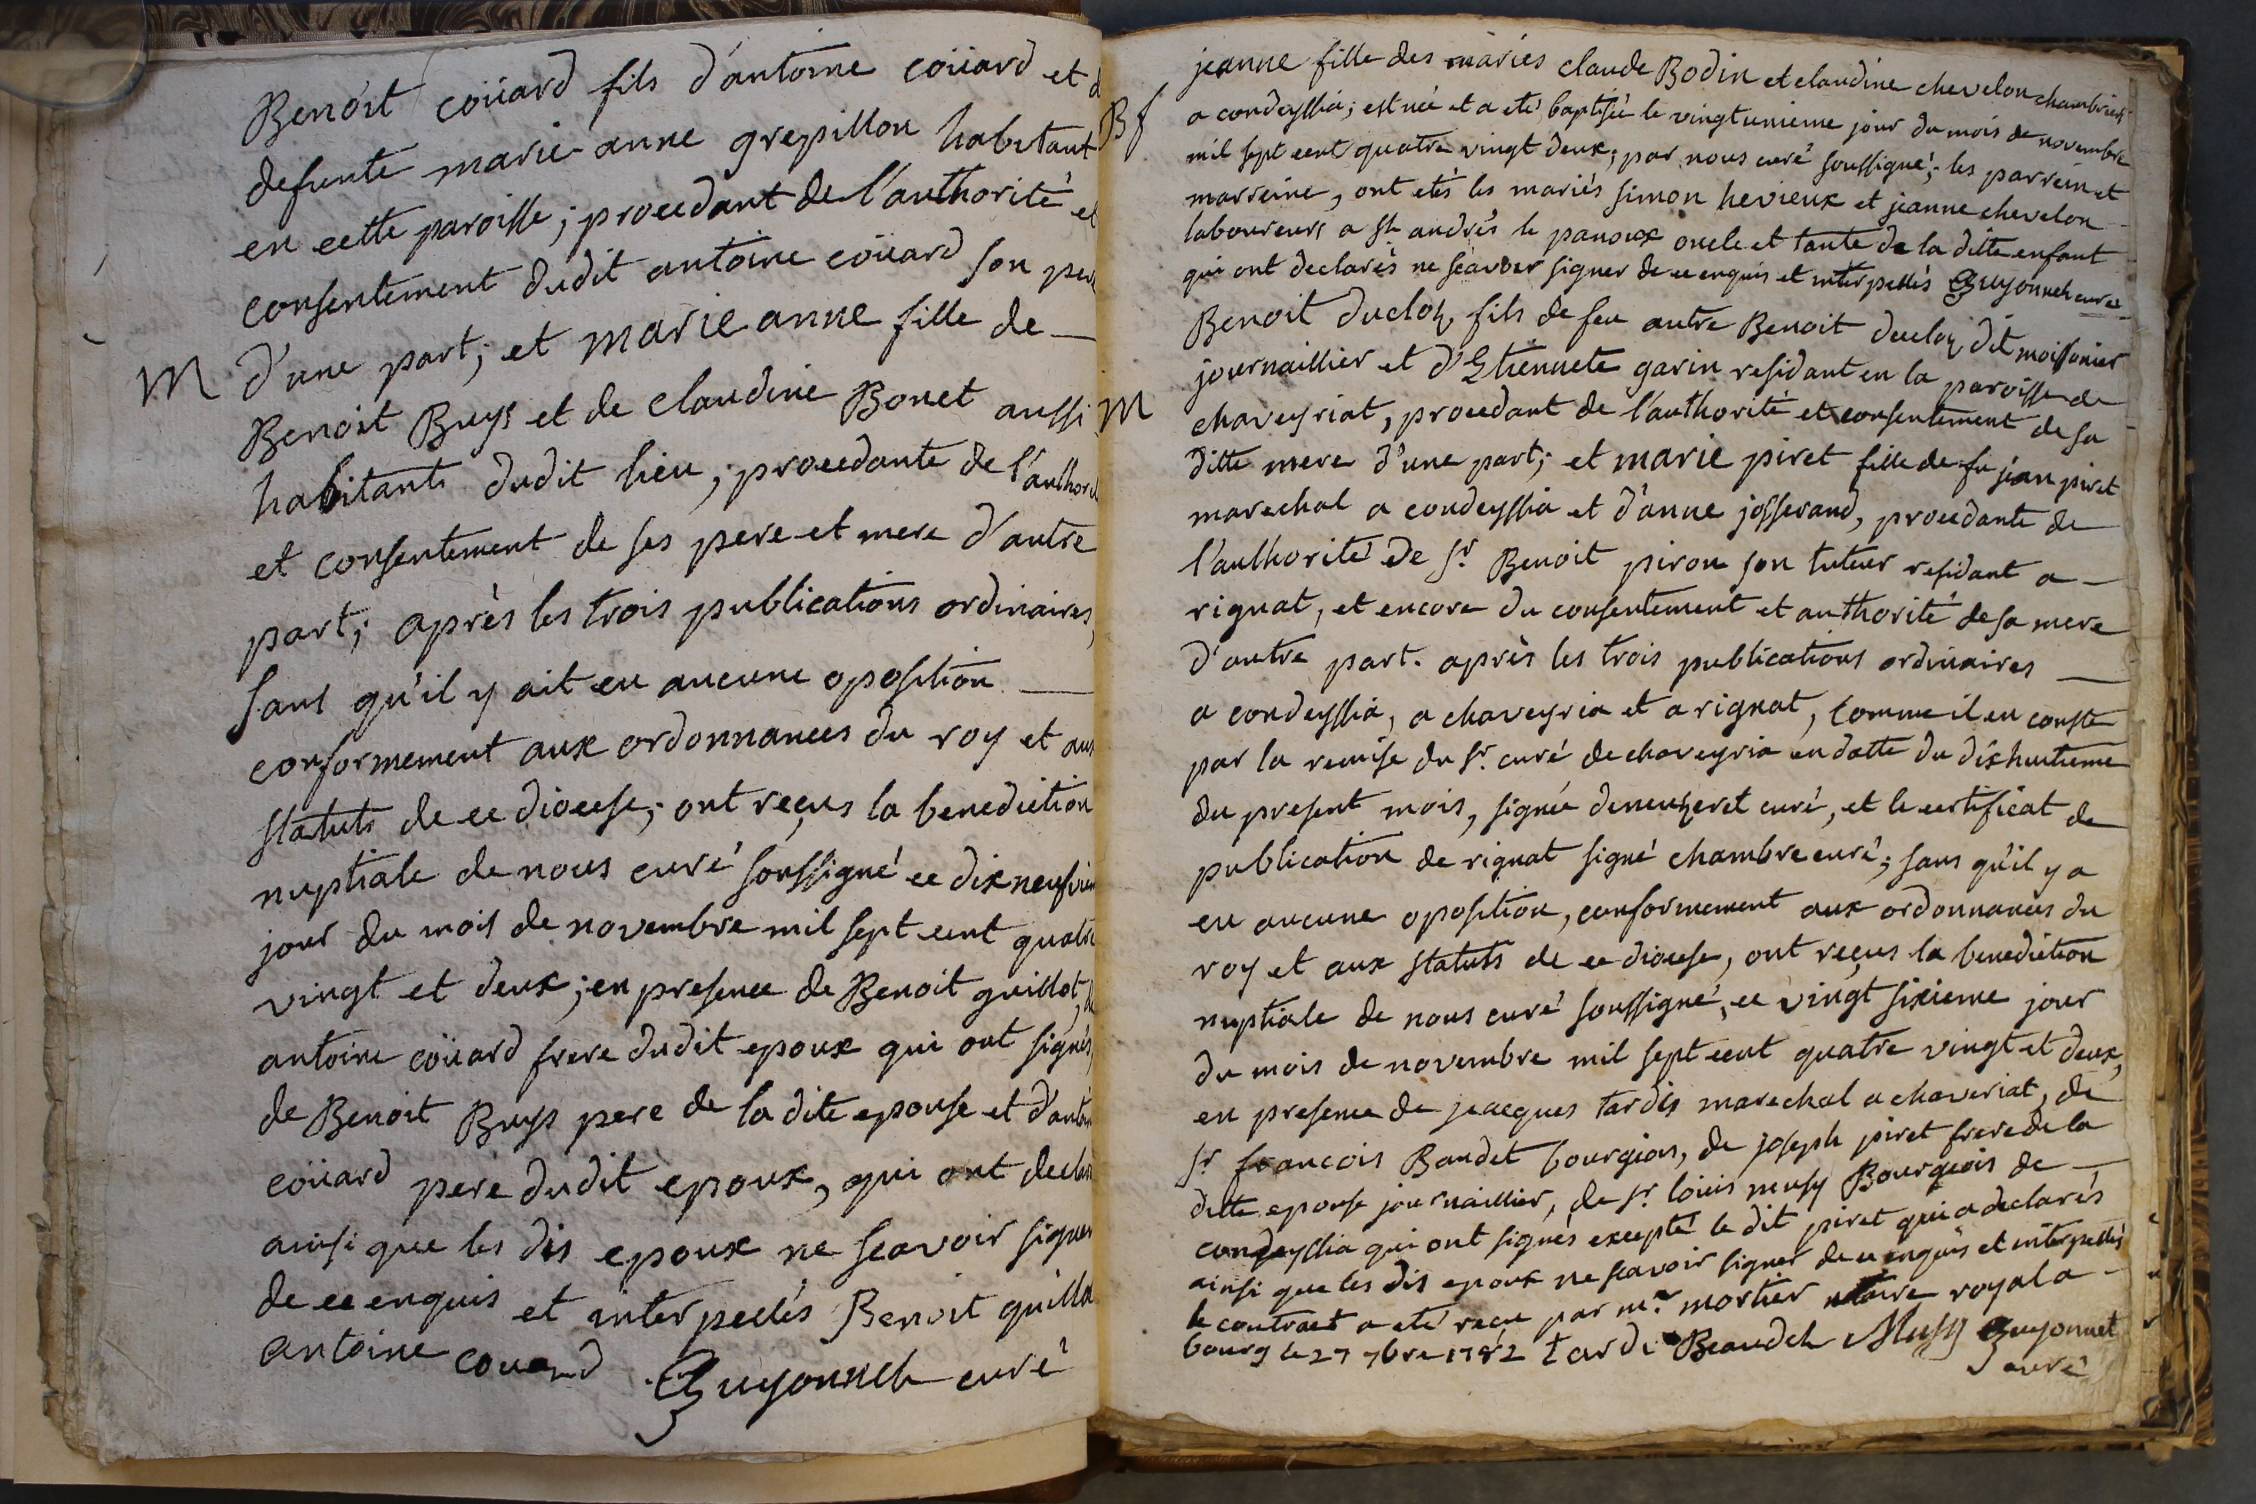 Benoit coüard fils d'antoine coüard et d
defunte marie anne grepillon habitant
en cette paroisse; procedant de l'authorité et
consentement dudit antoine coüard son pere
M d'une part; et marie anne fille de
Benoit Buys et de claudine Bonet aussi
habitants dudit lieu; procedante de l'authori
et consentement de ses pere et mere d'autre
part; après les trois publications ordinaires,
sans qu'il y ait eu aucune oposition
conformement aux ordonnances du roy et aux
statuts de ce diocese; ont reçus la benediction
nuptiale de nous curé soussigné ce dix neufvieme
jour du mois de novembre mil sept cent quatre
vingt et deux; en presence de Benoit guillot, de
antoine coüard frere dudit epoux qui ont signés,
de Benoit Buys pere de la dite epouse et d'antoin
coüard pere dudit epoux, qui ont declar
ainsi que les dis epoux ne scavoir signer
de ce enquis et interpellés Benoit guillot
antoine couard Guyonnet curé
jeanne fille des mariés claude Bodin et claudine chevelon
Bf a condeyssia; est née et a eté baptisée le vingtunieme jour du mois de novembre
mil sept cent quatre vingt deux; par nous curé soussigné; les parrein et
marreine, ont etés les mariés simon hevieux et jeanne chevelon
laboureurs a st andrés le panoux oncle et tante de la ditte enfant
qui ont declarés ne scavoir signer de ce enquis et interpellés Guyonnet curé
Benoit ducloz fils de feu autre Benoit ducloz dit moissonier
journaillier et d'Etiennete garin residant en la paroisse de
M chaveyriat, procedant de l'authorité et consentement de sa
ditte mere d'une part; et marie piret fille de fu jean piret
marechal a condeyssia et d'anne josserand, procedante de
l'authorité de sr. Benoit piron son tuteur residant a
rignat, et encore du consentement et authorité de sa mere
d'autre part. après les trois publications ordinaires
a condeyssia, a chaveyria et a rignat, comme il en conste
par la remise du sr. curé de chaveyria en datte du dixhuitieme
du present mois, signée curé, et le certificat de
publication de rignat signé chambre curé; sans qu'il y a
eu aucune oposition, conformement aux ordonnances du
roy et aux statuts de ce diocese, ont reçus la benediction
nuptiale de nous curé soussigné, ce vingt sixieme jour
du mois de novembre mil sept cent quatre vingt et deux,
en presence de jeacques tardis marechal a chaveriat, de
sr francois Baudet bourgeois, de joseph piret frere de la
ditte epouse journaillier, de sr. loüis musy Bourgeois de
condeyssia qui ont signés excepté le dit piret qui a declarés
ainsi que les dis epoux ne scavoir signer de ce enquis et interpellés
le contract a eté recu par mr. mortier notaire royal a
bourg le 27 7bre 1782 tardi Beaudet Musy Guyonnet
curé